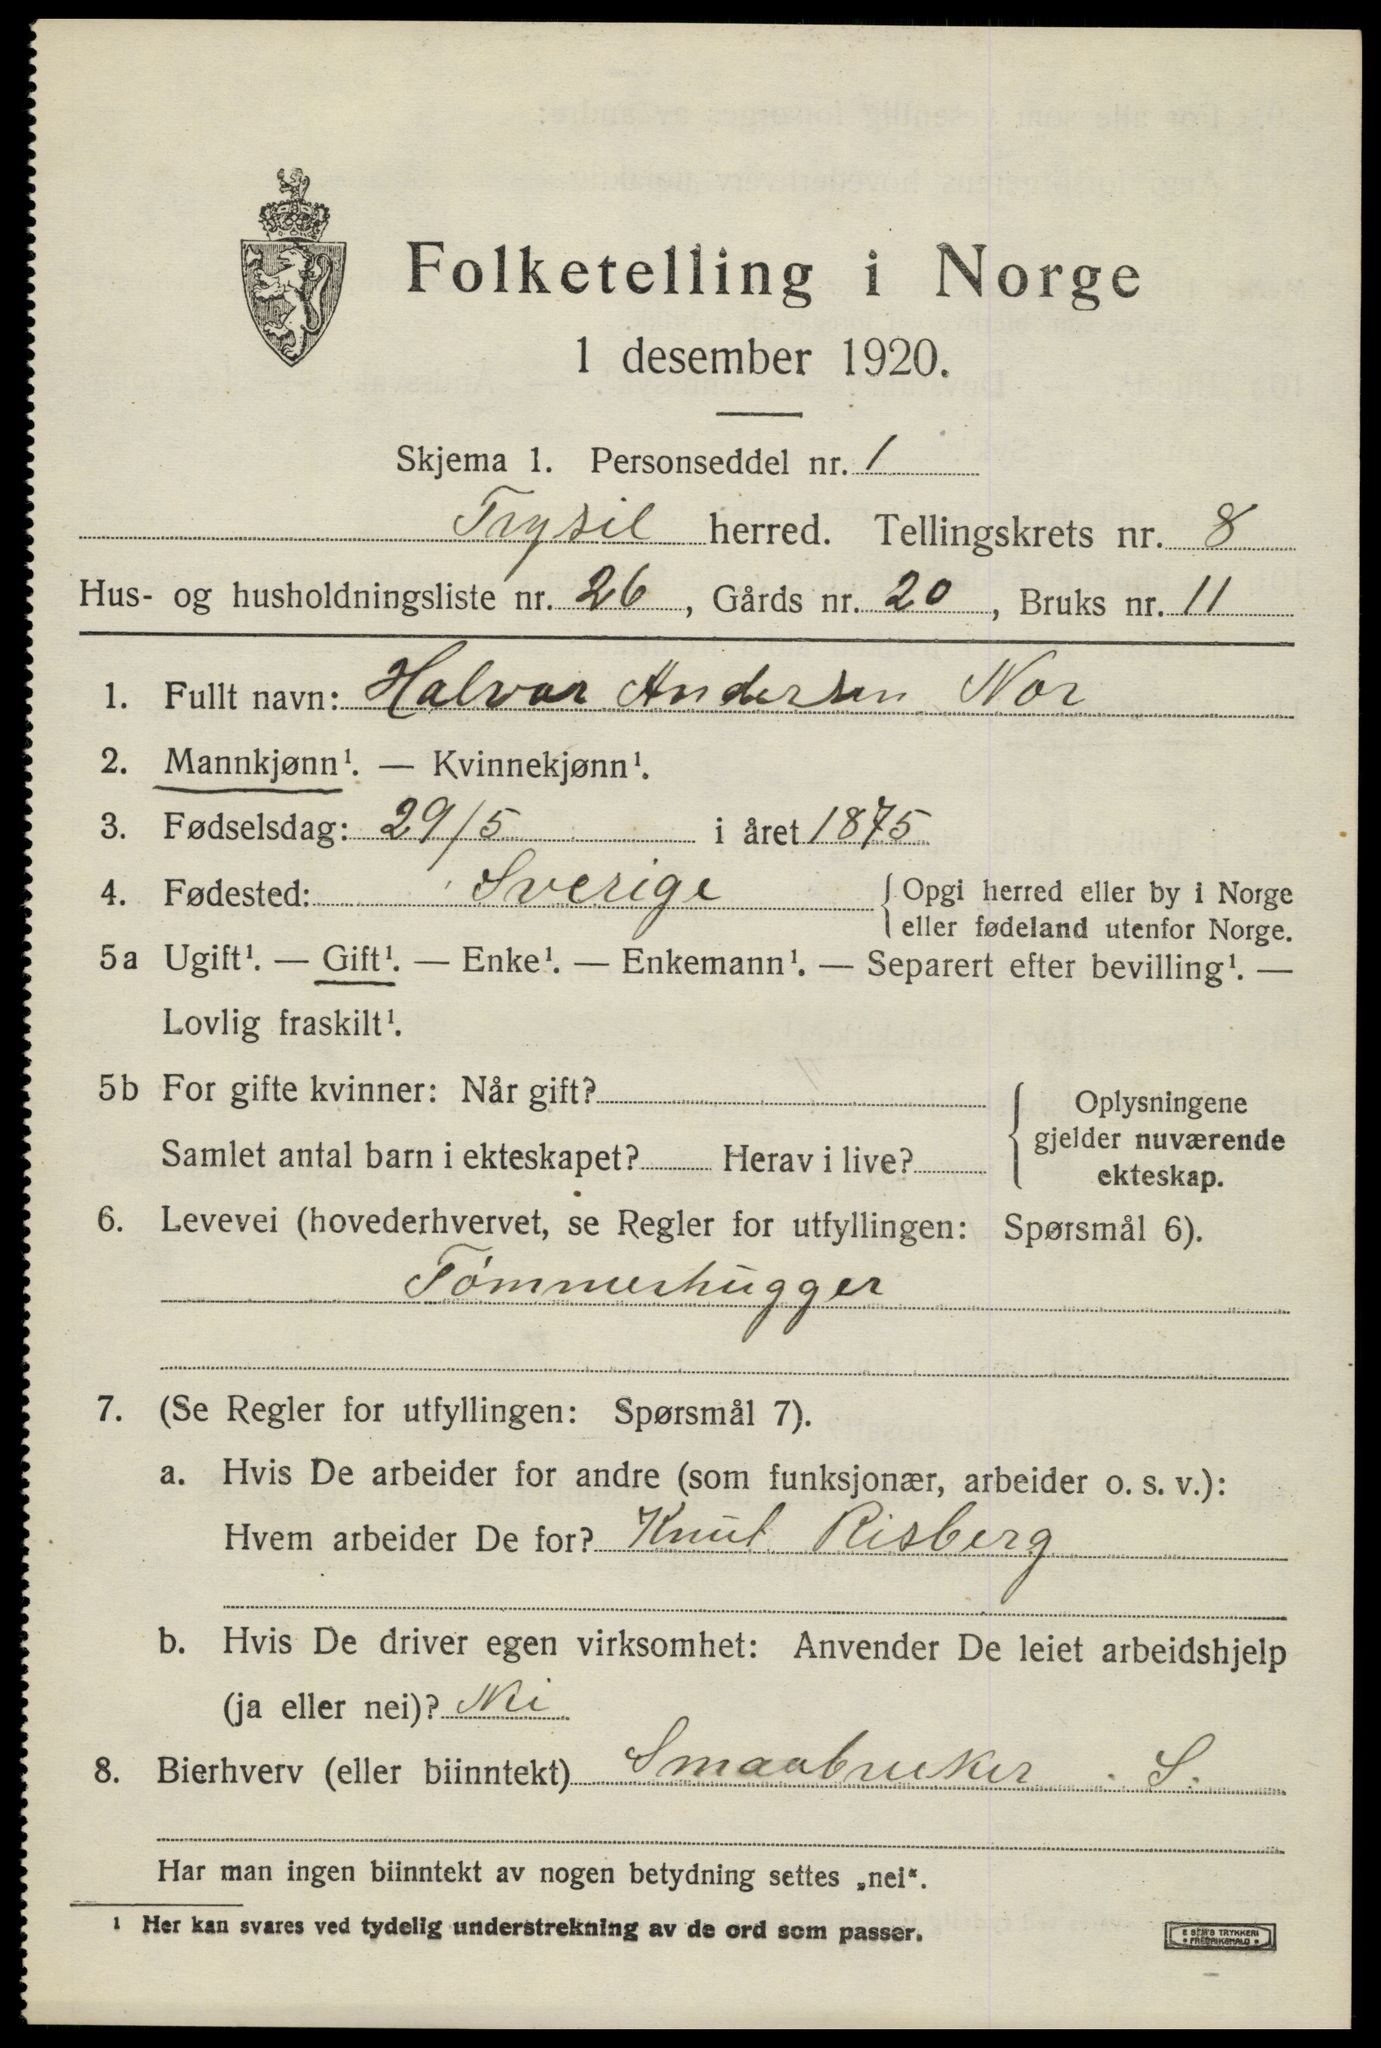 Folketelling i Norge
1 desember 1920.
Skjema 1. Personseddel nr. 1
Trysil herred. Tellingskrets nr. 8
Hus- og husholdningsliste nr. 26, Gårds nr. 20, Bruks nr. 11
1. Fullt navn: Halvor Andersen Nor
2. Mannkjønn¹. — Kvinnekjønn¹.
3. Fødselsdag: 29/5 i året 1875
4. Fødested: Sverige { Opgi herred eller by i Norge
eller fødeland utenfor Norge.
5a Ugift¹. — Gift¹. — Enke¹. — Enkemann¹. — Separert efter bevilling¹. —
Lovlig fraskilt¹.
5b For gifte kvinner: Når gift?
Samlet antal barn i ekteskapet? Herav i live?
{ Oplysningene
gjelder nuværende
ekteskap.
6. Levevei (hovederhvervet, se Regler for utfyllingen: Spørsmål 6).
Tømmerhugger
7. (Se Regler for utfyllingen: Spørsmål 7).
a. Hvis De arbeider for andre (som funksjonær, arbeider o. s. v.):
Hvem arbeider De for? Knut Risberg
b. Hvis De driver egen virksomhet: Anvender De leiet arbeidshjelp
(ja eller nei)? Nei
8. Bierhverv (eller biinntekt) Smaabruker . S.
Har man ingen biinntekt av nogen betydning settes „nei".
¹ Her kan svares ved tydelig understrekning av de ord som passer.
E SEM'S TRYKKERI
• FREDRIKSHALD •